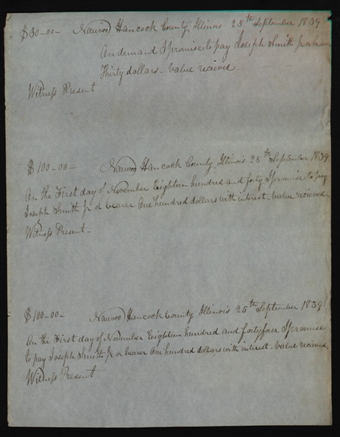 $30-00- Nauvoo Hancock County Illinois 25th September 1839
On demand I promise to pay Joseph Smith Jr or bearer
Thirty dollars. Value received
Witness Present
$100-00- Nauvoo Hancock County Illinois 25th September 1839
On the First day of November Eighteen hundred and forty I promise to pay
Joseph Smith Jr or bearer One hundred dollars with interest. Value received
Witness Present-
$100-00- Nauvoo Hancock County Illinois 25th September 1839
On the First day of November Eighteen hundred and forty four I promise
to pay Joseph Smith Jr or bearer One hundred dollars with interest. Value received
Witness Present